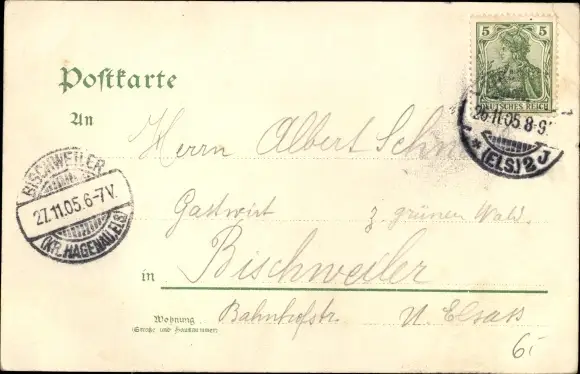 5
DEUTSCHES REICH
Postkarte
26.11.05.8-9
(ELS.) 2 J
An
Herrn Albert
BISCHWEILER
27.11.05.6-7V.
(KR. HAGENAU, ELS)
Gastwirt z. grünen Wald.
in Bischweiler
Wohnung
(Straße und Hausnummer)
Bahnhofstr. U. Elsaß
6.-